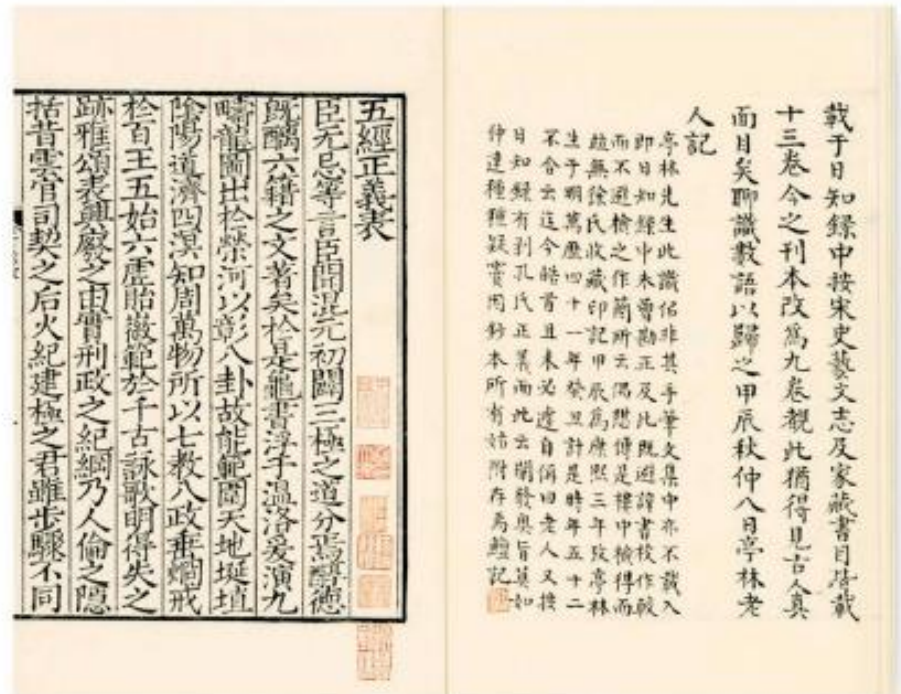 載于日知錄中按宋史藝文志及家藏書目皆載
十三卷今之刊本改爲九卷觀此猶得見古人真
面目矣聊識數語以歸之甲辰秋仲八日亭林老
人記
亭林先生此識似非其手筆文集中亦不載入
即日知錄中未曾勘正及此既避諱書校作較
而不避檢之作簡所云偶憩傳是樓中檢得而
蹤無徐氏收藏印記甲辰爲康熙三年攷亭林
生于明萬曆四十一年癸丑計是時年五十二
不合云迄今皓首且未必遽自偁曰老人又按
日知錄有剥孔氏正義而此云闡發奧旨莫如
仲達種種疑竇用鈔本所有姑附存焉鱣記
五經正義表
臣无忌等言臣聞混元初闢三極之道分焉醇德
既醨六籍之文著矣於是龜書浮于溫洛爰演九
疇龍圖出於榮河以彰八卦故能範圍天地埏埴
陰陽道濟四溟知周萬物所以七教八政垂烱戒
於百王五始六虛貽徽範於千古詠歌明得失之
跡雅頌表興廢之由實刑政之紀綱乃人倫之隱
括昔雲官司契之后火紀建極之君雖步驟不同